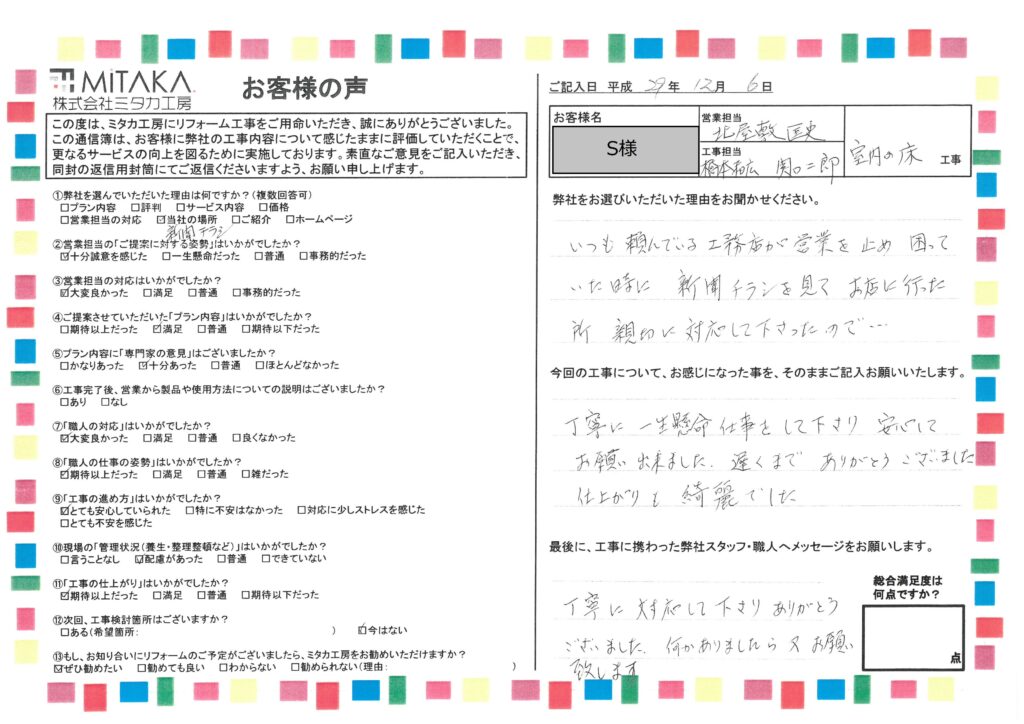 MiTAKA
株式会社ミタカ工房
お客様の声
この度は、ミタカ工房にリフォーム工事をご用命いただき、誠にありがとうございました。
この通信簿は、お客様に弊社の工事内容について感じたままに評価していただくことで、
更なるサービスの向上を図るために実施しております。素直なご意見をご記入いただき、
同封の返信用封筒にてご返信くださいますよう、お願い申し上げます。
①弊社を選んでいただいた理由は何ですか?(複数回答可)
□プラン内容 □評判 □サービス内容 □価格
□営業担当の対応 ☑当社の場所 □ご紹介 □ホームページ
新聞チラシ
②営業担当の「ご提案に対する姿勢」はいかがでしたか?
☑十分誠意を感じた □一生懸命だった □普通 □事務的だった
③営業担当の対応はいかがでしたか?
☑大変良かった □満足 □普通 □事務的だった
④ご提案させていただいた「プラン内容」はいかがでしたか?
□期待以上だった ☑満足 □普通 □期待以下だった
⑤プラン内容に「専門家の意見」はございましたか?
□かなりあった ☑十分あった □普通 □ほとんどなかった
⑥工事完了後、営業から製品や使用方法についての説明はございましたか?
□あり □なし
⑦「職人の対応」はいかがでしたか?
☑大変良かった □満足 □普通 □良くなかった
⑧「職人の仕事の姿勢」はいかがでしたか?
☑期待以上だった □満足 □普通 □雑だった
⑨「工事の進め方」はいかがでしたか?
☑とても安心していられた □特に不安はなかった □対応に少しストレスを感じた
□とても不安を感じた
⑩現場の「管理状況(養生・整理整頓など)」はいかがでしたか?
□言うことなし ☑配慮があった □普通 □できていない
⑪「工事の仕上がり」はいかがでしたか?
☑期待以上だった □満足 □普通 □期待以下だった
⑫次回、工事検討箇所はございますか?
□ある(希望箇所: ) ☑今はない
⑬もし、お知り合いにリフォームのご予定がございましたら、ミタカ工房をお勧めいただけますか?
☑ぜひ勧めたい □勧めても良い □わからない □勧められない(理由: )
ご記入日 平成 29年 12月 6日
お客様名
S様
営業担当
北屋敷 匡史
工事担当
橋本拓広 関口二郎
室内の床 工事
弊社をお選びいただいた理由をお聞かせください。
いつも頼んでいる工務店が営業を止め 困って
いた時に 新聞チラシを見て お店に行った
所 親切に対応して下さったので…
今回の工事について、お感じになった事を、そのままご記入お願いいたします。
丁寧に 一生懸命仕事をして下さり 安心して
お願い出来ました. 遅くまで ありがとうございました
仕上がりも 綺麗でした
最後に、工事に携わった弊社スタッフ・職人へメッセージをお願いします。
丁寧に対応して下さり ありがとう
ございました. 何かありましたら 又 お願い
致します
総合満足度は
何点ですか?
点